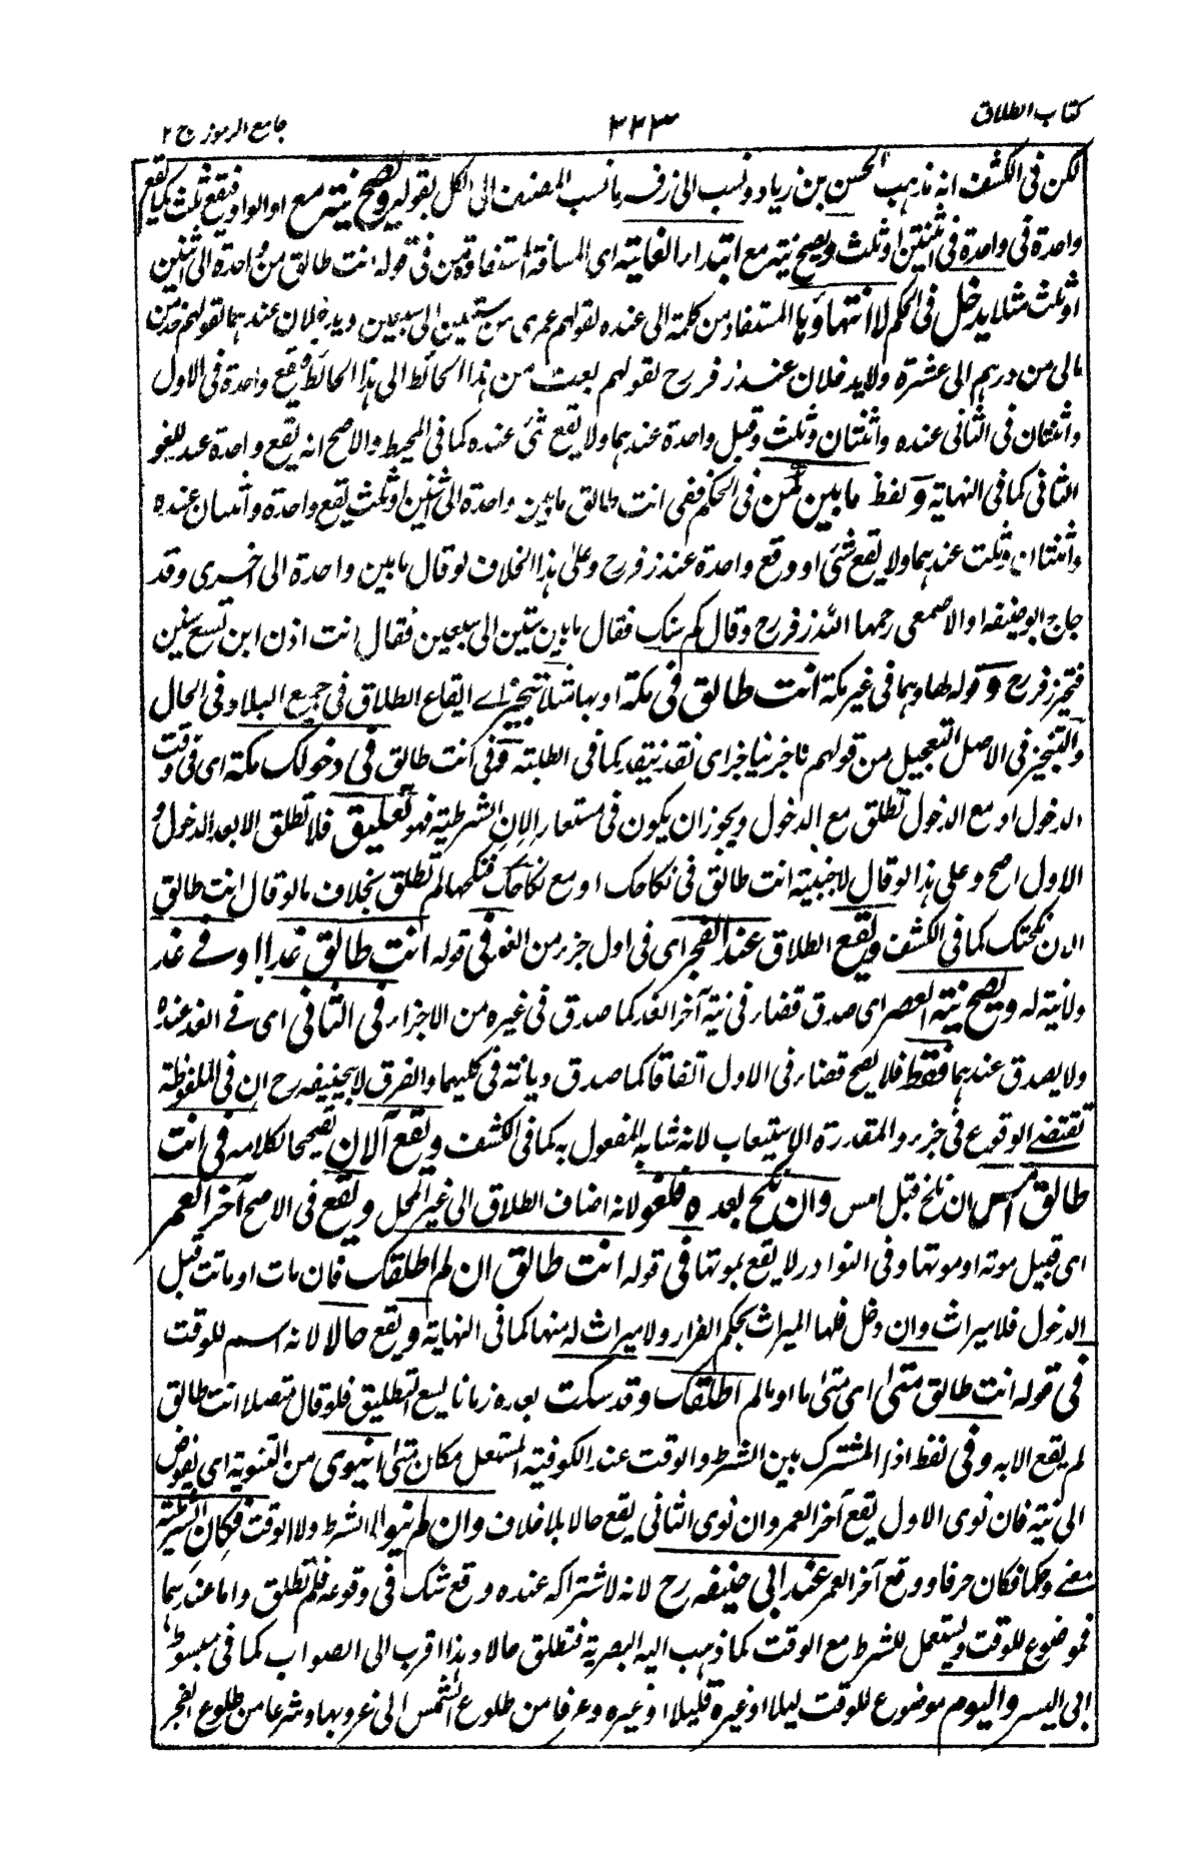 كتاب الطلاق
٣٤٣
جامع الرموز ج ٢
لكن فى الكشف انه مذهب الحسن بن زياد ونسب الى زفر ما نسب المصنف الى الكل بقوله ويصح نيته مع او الواو فيقع ثلث كما يقع
واحدة فى واحدة فى اثنتين او ثلث ويصح نيته مع ابتداء الغاية اى المسافة المستفادة من فى قوله انت طالق من واحدة الى اثنتين
او ثلث مثلا يدخل فى الحكم لا انتهاؤها المستفاد من كلمة الى عنده لقولهم عمرى من ستين الى سبعين ويدخلان عندهما لقولهم خذ من
مالى من درهم الى عشرة ولا يدخلان عند زفر رح لقولهم بعت من هذا الحائط الى هذا الحائط فيقع واحدة فى الاول
واثنتان فى الثانى عنده واثنتان وثلث وقيل واحدة عندهما ولا يقع شئ عنده كما فى المحيط والاصح انه يقع واحدة عند للغو
الثانى كما فى النهاية ولفظ ما بين كمن فى الحكم ففى انت طالق ما بين واحدة الى اثنتين او ثلث يقع واحدة واثنتان عنده
واثنتان وثلث عندهما ولا يقع شئ او وقع واحدة عند زفر رح وعلى هذا الخلاف لو قال ما بين واحدة الى اخرى وقد
حاج ابو حنيفة او الاصمعى رحمهما الله زفر رح وقال كم سنك فقال ما بين ستين الى سبعين فقال انت اذن ابن تسع سنين
فتحير زفر رح وقوله لها وهما فى غير مكة انت طالق فى مكة او بها مثلا تنجيز اے ايقاع الطلاق فى جميع البلاد وفى الحال
والتنجيز فى الاصل التعجيل من قولهم ناجز بناجز اى نقد بنقد كما فى الطلبة وفى انت طالق فى دخولك مكة اى فى وقت
الدخول او مع الدخول تطلق مع الدخول ويجوز ان يكون فى مستعار الان الشرطية فهو تعليق فلا تطلق الا بعد الدخول و
الاول اصح وعلى هذا لو قال لاجنبية انت طالق فى نكاحك او مع نكاحك فنكحها لم تطلق بخلاف ما لو قال انت طالق
ان نكحتك كما فى الكشف ويقع الطلاق عند الفجر اى فى اول جزء من الغد فى قوله انت طالق غدا او فے غد
ولا نية له ويصح نية العصر اى صدق قضاء فى نية آخر الغد كما صدق فى غيره من الاجزاء فى الثانى اى فے الغد عنده
ولا يصدق عندهما فقط فلا يصح قضاء فى الاول اتفاقا كما صدق ديانة فى كليهما والفرق لابيحنيفه رح ان فى الملفوظة
تقتضے الوقوع فى جزء والمقدرة الاستيعاب لانه شابه المفعول به كما فى الكشف ويقع الآن تصحيحا لكلامه فى انت
طالق امس ان نكح قبل امس وان نكح بعده فلغو لانه اضاف الطلاق الى غير المحل ويقع فى الاصح آخر العمر
اى قبيل موته او موتها وفى النوادر لا يقع بموتها فى قوله انت طالق ان لم اطلقك فان مات او ماتت قبل
الدخول فلا ميراث وان دخل فلها الميراث بحكم الفرار ولا ميراث له منها كما فى النهاية ويقع حالا لانه اسم للوقت
فى قوله انت طالق متى اى متى ما او ما لم اطلقك وقد سكت بعده زمانا يسع التطليق فلو قال متصلا انت طالق
لم يقع الا به وفى لفظ اذا المشترك بين الشرط والوقت عند الكوفية المستعمل مكان متى ينوى من التنوية اى يفوض
الى نيته فان نوى الاول يقع آخر العمر وان نوى الثانى يقع حالا بلا خلاف وان لم ينو لا الشرط ولا الوقت فكان الشرطية
معنے وحكما فكان حرفا ووقع آخر العمر عند ابى حنيفه رح لانه لاشتراكه عنده وقع شك فى وقوعه فلم تطلق واما عندهما
فموضوع للوقت ويستعمل للشرط مع الوقت كما ذهب اليه البصرية فتطلق حالا وهذا اقرب الى الصواب كما فى مبسوط
ابى اليسر واليوم موضوع للوقت ليلا او غيره قليلا او غيره وعرفا من طلوع الشمس الى غروبها وشرعا من طلوع الفجر